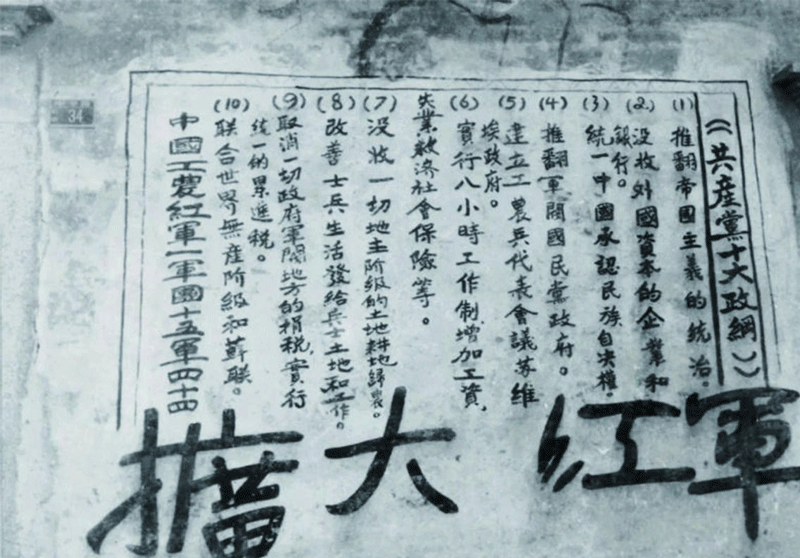 《共產黨十大政綱》
(1) 推翻帝國主義的统治。
(2) 没收外國資本的企業和
銀行。
(3) 統一中國承認民族自决權。
(4) 推翻軍閥國民黨政府。
(5) 建立工農兵代表會議苏維
埃政府。
(6) 實行八小時工作制增加工資,
失業救济社會保險等。
(7) 没收一切地主阶級的土地耕地歸農。
(8) 改善士兵生活發給兵士土地和工作。
(9) 取消一切政府軍閥地方的捐税,實行
統一的累進税。
(10) 联合世界無産阶級和蘇联。
中國工農紅軍一軍團十五軍四十四
擴大紅軍
34